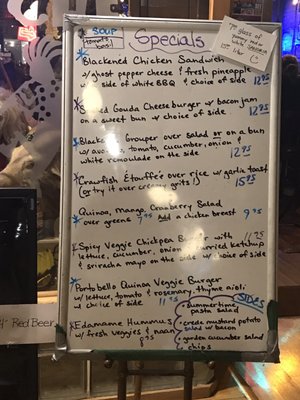 SOUP
tomato basil
Specials
Blackened Chicken Sandwich
w/ ghost pepper cheese & fresh pineapple
w/ side of white BBQ & choice of side 12.95
Smoked Gouda Cheeseburger w/ bacon jam
on a sweet bun w/ choice of side 12.95
Blackened Grouper over salad or on a bun
w/ avocado, tomato, cucumber, onion &
white remoulade on the side 12.95
Crawfish Etouffée over rice w/ garlic toast
(or try it over creamy grits!) 15.95
Quinoa, Mango, Cranberry Salad
over greens 7.95 Add a chicken breast 9.95
Spicy Veggie Chickpea Burger with 11.25
lettuce, cucumber, onion, curried ketchup
& sriracha mayo on the side w/ choice of side
Portobello Quinoa Veggie Burger
w/ lettuce, tomato & rosemary thyme aioli
w/ choice of side 11.95
Edamame Hummus
w/ fresh veggies & naan
SIDES
• summertime
pasta salad
• creole mustard potato
salad w/ bacon
• garden cucumber salad
• chips
glass of
Red Beer